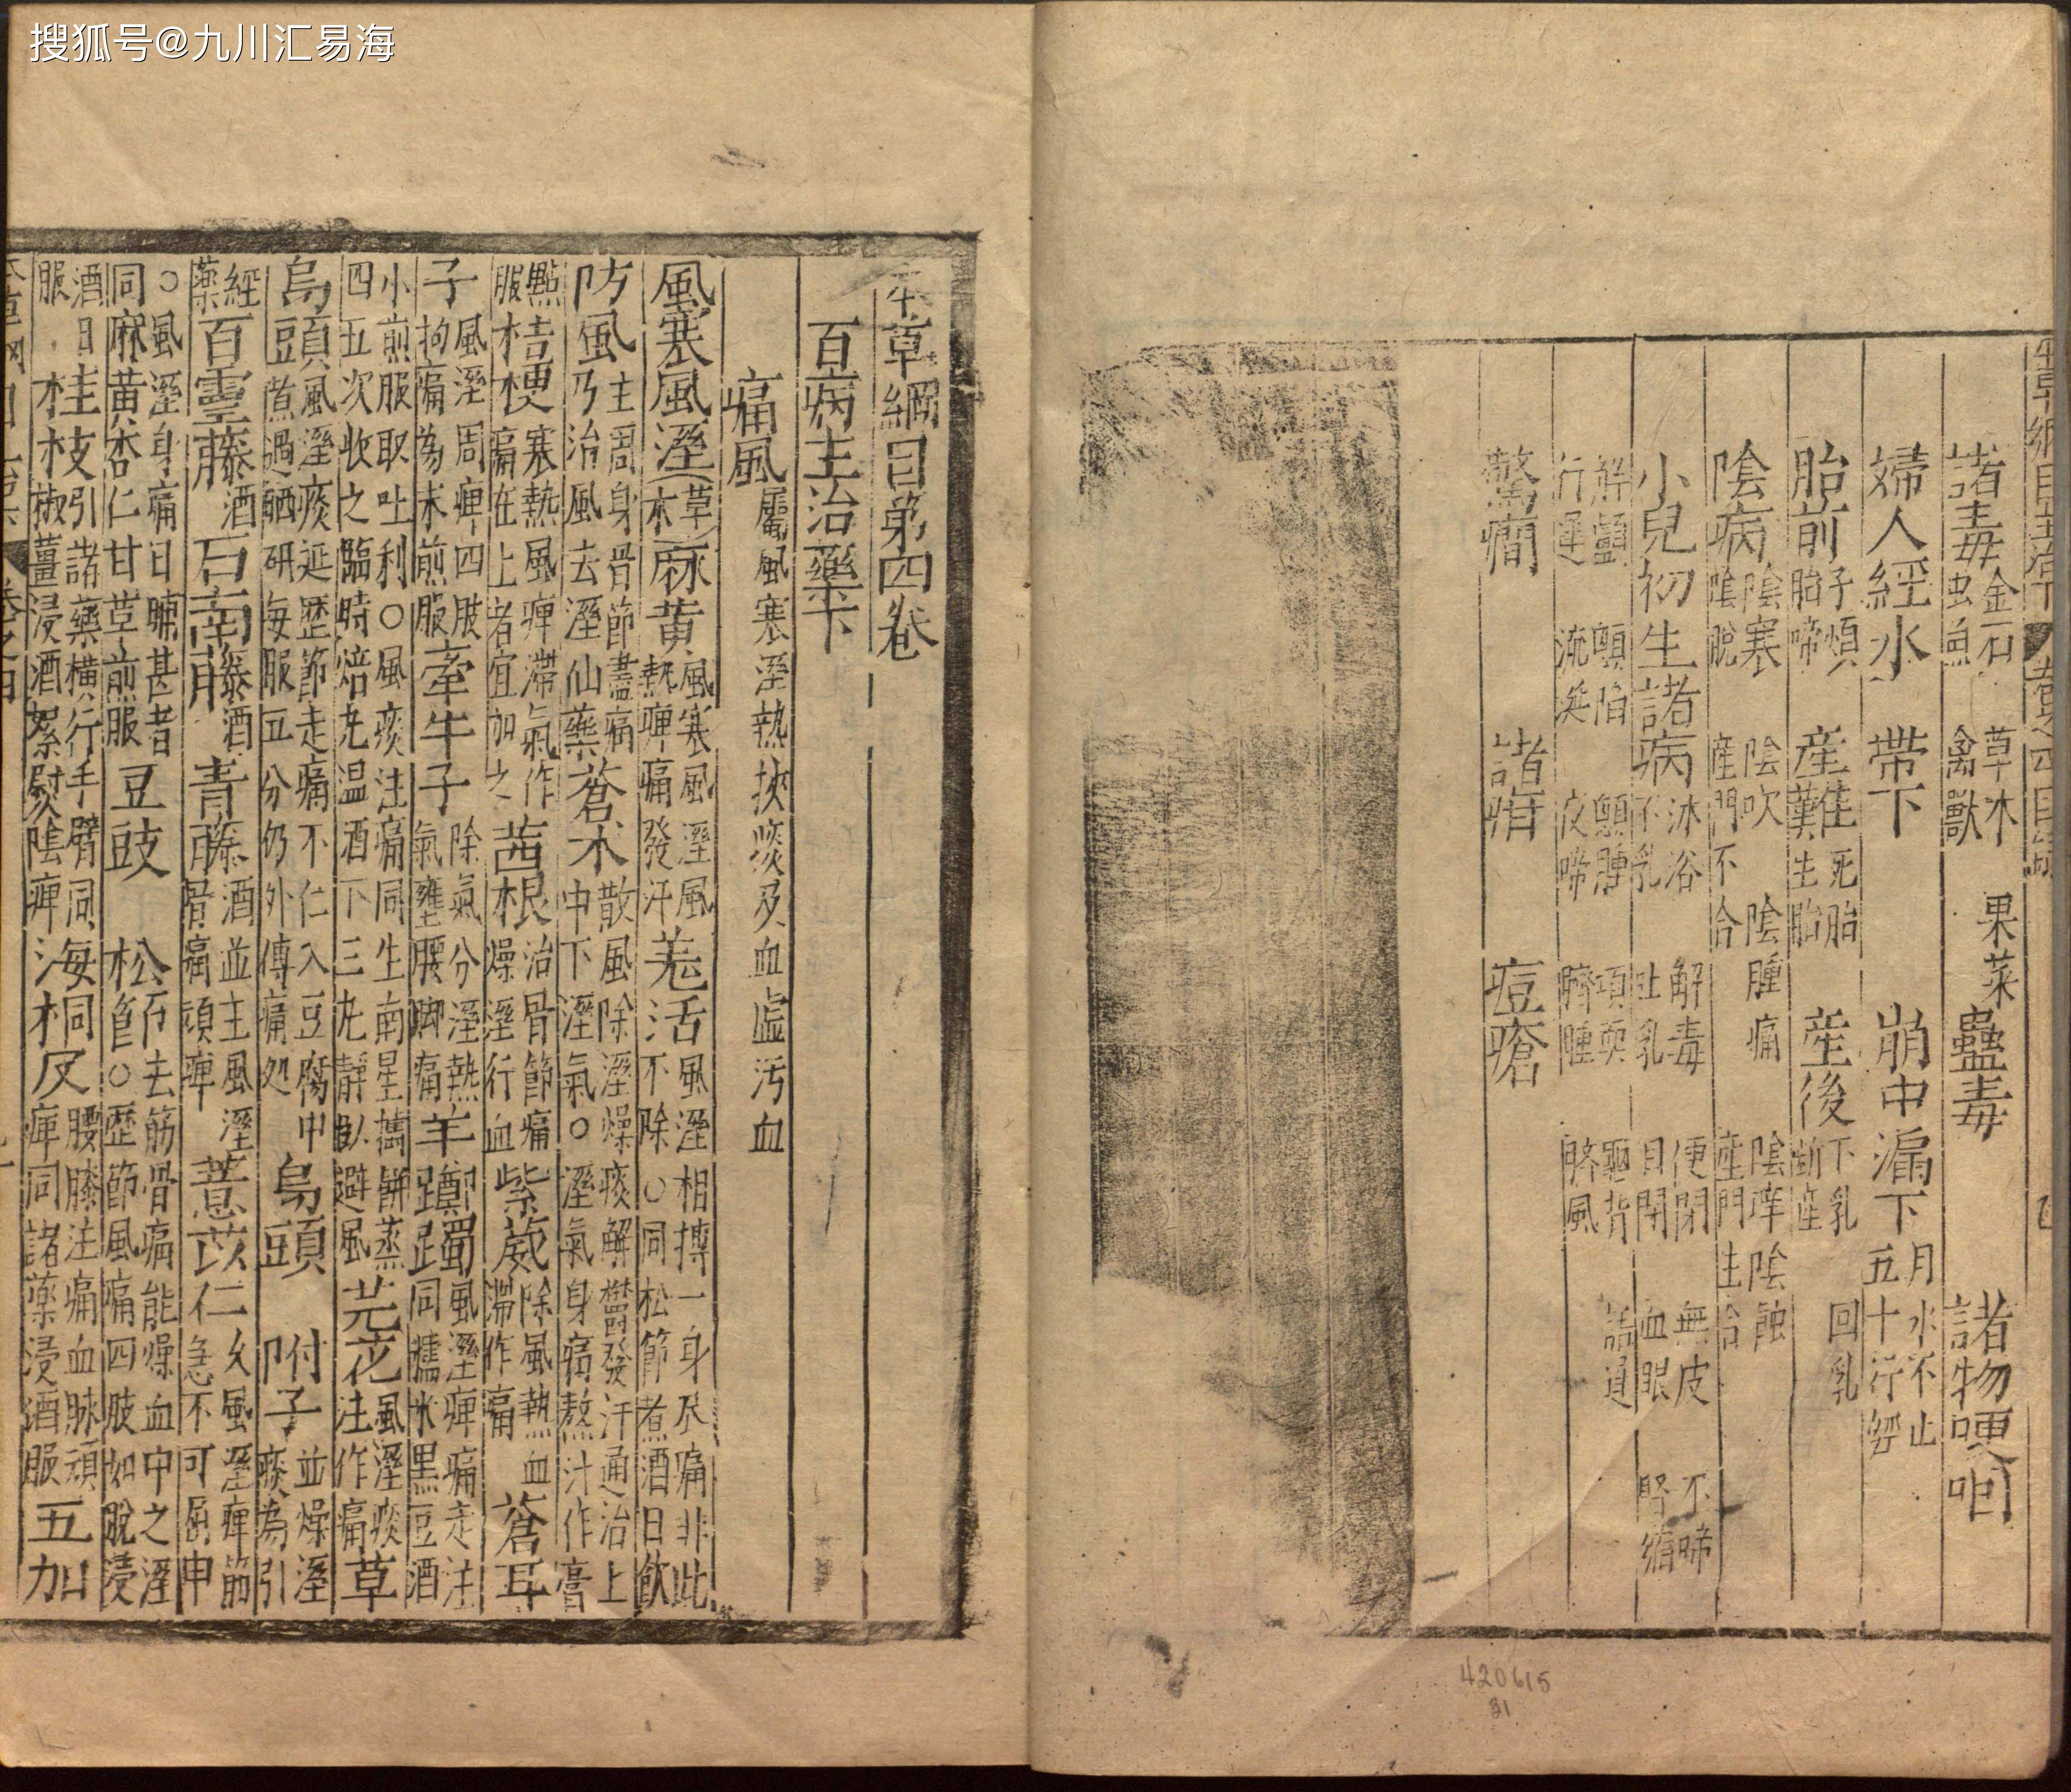 搜狐号@九川汇易海
本草綱目主治下 卷之四目錄
諸毒 金石 草木 果菜 虫魚 禽獸 蠱毒 諸物哽咽
婦人經水 帶下 崩中漏下 月水不止 五十行經
胎前 子煩 胎啼 產難 死胎 生胎 產後 下乳 回乳 斷產
陰病 陰寒 陰吹 陰腫痛 陰痒 陰蝕 陰脫 產門不合 產門生合
小兒初生諸病 沐浴 解毒 便閉 無皮 不啼 不乳 吐乳 目閉 血眼 腎縮
解顱 顖陷 顖腫 項軟 龜背 語遲 行遲 流涎 夜啼 臍腫 臍風
驚癎 諸疳 痘瘡
420615
31
本草綱目第四卷
百病主治藥下
痛風 屬風寒溼熱挾痰及血虛汚血
風寒風溼 草木 麻黃 風寒風溼風熱痺痛發汗 羗活 風溼相搏一身尽痛非此不除○同松節煮酒日飲
防風 主周身骨節盡痛乃治風去溼仙藥 蒼朮 散風除溼燥痰解鬱發汗通治上中下溼氣○溼氣身痛熬汁作膏
點服 桔梗 寒熱風痺滯氣作痛在上者宜加之 茜根 治骨節痛燥溼行血 紫葳 除風熱血滯作痛 蒼耳
子 風溼周痺四肢拘痛為末煎服 牽牛子 除氣分溼熱氣壅腰脚痛 羊躑躅 風溼痺痛走注同糯米黑豆酒
小煎服取吐利○風痰注痛同生南星擣餅蒸四五次收之臨時焙丸温酒下三丸靜臥避風 芫花 風溼痰注作痛 草
烏頭 風溼痰延歷節走痛不仁入豆腐中豆煮過晒研每服五分仍外傅痛処 烏頭 附子 並燥溼痰為引
經藥 百靈藤 酒 石南藤 酒 青藤 酒並主風溼骨痛頑痺 薏苡仁 久風溼痺筋急不可屈申
○風溼身痛日晡甚者同麻黃杏仁甘草煎服 豆豉 松節 去筋骨痛能燥血中之溼○歷節風痛四肢如脫浸
酒日服 桂枝 引諸藥橫行手臂同椒薑浸酒絮熨陰痺 海桐皮 腰膝注痛血脉頑痺同諸藥浸酒服 五加